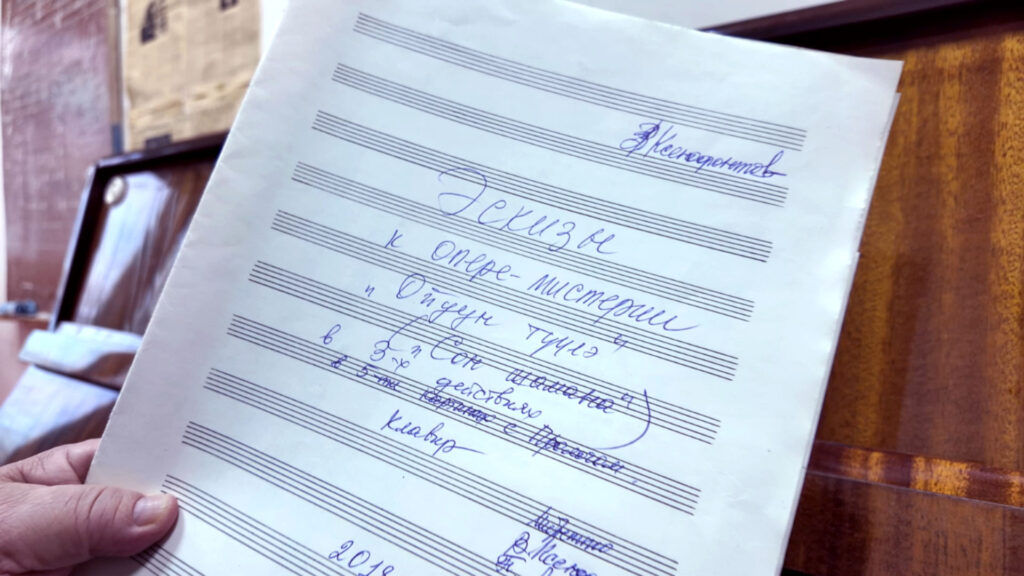 Ксенофонтов
Эскизы
к опере-мистерии
"Ойуун түүлэ"
("Сон шамана")
в 3-х действиях
в 5-ти картинах с Прологом
Клавир
Либретто
В. Ксено
2019